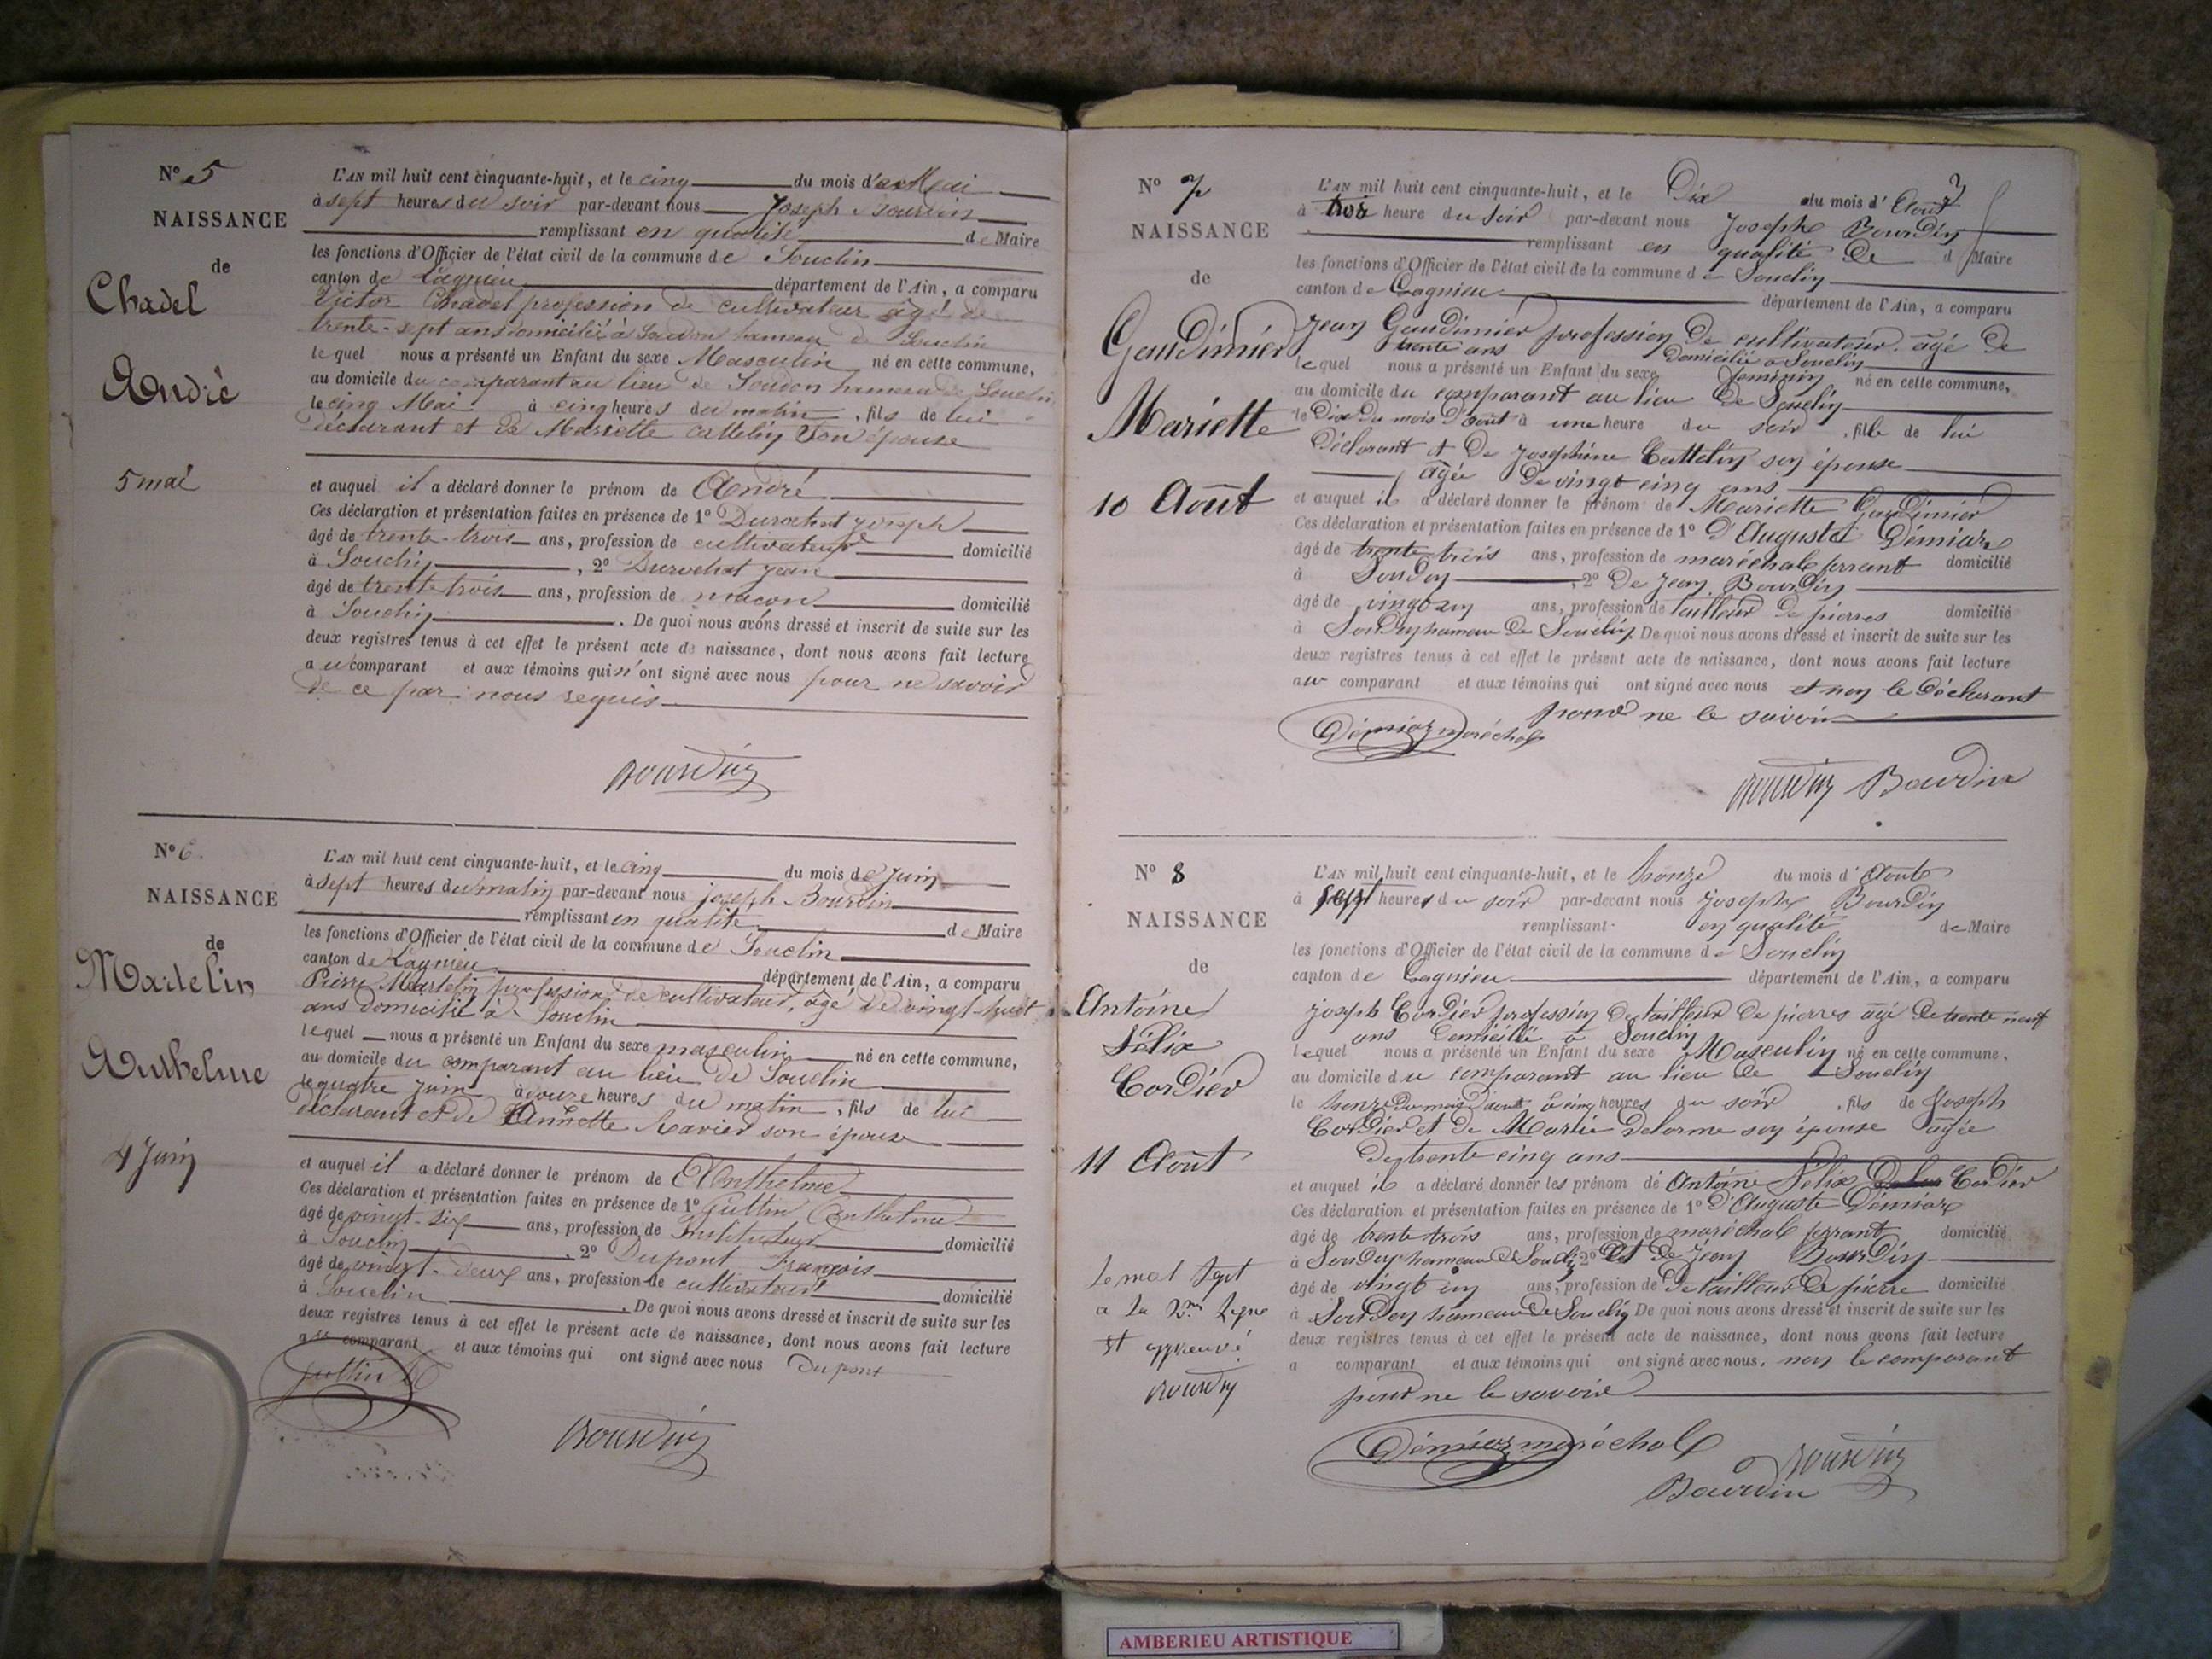 N° 5
NAISSANCE
de
Chadel
André
5 mai
L'AN mil huit cent cinquante-huit, et le cinq du mois de Mai
à sept heures du soir par-devant nous Joseph Bourdin
remplissant en qualité de Maire
les fonctions d'Officier de l'état civil de la commune de Souclin
canton de Lagnieu département de l'Ain, a comparu
Victor Chadel profession de cultivateur âgé de
trente-sept ans domicilié à Soudon hameau de Souclin
lequel nous a présenté un Enfant du sexe Masculin né en cette commune,
au domicile du comparant au lieu de Soudon hameau de Souclin
le cinq Mai à cinq heures du matin, fils de lui
déclarant et de Mariette Cattelin son épouse
et auquel il a déclaré donner le prénom de André
Ces déclaration et présentation faites en présence de 1° Durochat joseph
âgé de trente-trois ans, profession de cultivateur domicilié
à Souclin, 2° Durochat jean
âgé de trente trois ans, profession de macon domicilié
à Souclin. De quoi nous avons dressé et inscrit de suite sur les
deux registres tenus à cet effet le présent acte de naissance, dont nous avons fait lecture
au comparant et aux témoins qui n'ont signé avec nous pour ne savoir
de ce par nous requis
Bourdin
N° 6
NAISSANCE
de
Martelin
Anthelme
4 Juin
L'AN mil huit cent cinquante-huit, et le cinq du mois de juin
à sept heures du matin par-devant nous joseph Bourdin
remplissant en qualité de Maire
les fonctions d'Officier de l'état civil de la commune de Souclin
canton de Lagnieu département de l'Ain, a comparu
Pierre Martelin profession de cultivateur, âgé de vingt-huit
ans domicilié à Souclin
lequel nous a présenté un Enfant du sexe masculin né en cette commune,
au domicile du comparant au lieu de Souclin
le quatre juin à douze heures du matin, fils de lui
déclarant et de Annette Ravier son épouse
et auquel il a déclaré donner le prénom de Anthelme
Ces déclaration et présentation faites en présence de 1° Guttin Anthelme
âgé de vingt-six ans, profession de Instituteur domicilié
à Souclin, 2° Dupont François
âgé de vingt-deux ans, profession de cultivateur domicilié
à Souclin. De quoi nous avons dressé et inscrit de suite sur les
deux registres tenus à cet effet le présent acte de naissance, dont nous avons fait lecture
au comparant et aux témoins qui ont signé avec nous Dupont
guttin
Bourdin
N° 7
NAISSANCE
de
Gaudimier
Mariette
10 Août
L'AN mil huit cent cinquante-huit, et le Dix du mois d'Août
à trois heure du soir par-devant nous Joseph Bourdin
remplissant en qualité de d Maire
les fonctions d'Officier de l'état civil de la commune de Souclin
canton de Lagnieu département de l'Ain, a comparu
Jean Gaudimier profession De cultivateur âgé de
trente ans Domicilié à Souclin
lequel nous a présenté un Enfant du sexe féminin né en cette commune,
au domicile du comparant au lieu De Souclin
le Dix du mois d'août à une heure du soir, fille de lui
Déclarant et De Joséphine Cattelin son épouse
âgée De vingt cinq ans
et auquel il a déclaré donner le prénom de Mariette Gaudimier
Ces déclaration et présentation faites en présence de 1° D'Auguste Démiaz
âgé de trente trois ans, profession de maréchal ferrant domicilié
à Soudon, 2° De Jean Bourdin
âgé de vingt un ans, profession de tailleur De pierres domicilié
à Soudon hameau De Souclin De quoi nous avons dressé et inscrit de suite sur les
deux registres tenus à cet effet le présent acte de naissance, dont nous avons fait lecture
au comparant et aux témoins qui ont signé avec nous et non le Déclarant
pour ne le savoir
Démiaz maréchal
Bourdin Bourdin
N° 8
NAISSANCE
de
Antoine
Félix
Cordier
11 Août
Le mot Sept
a la 2me ligne
est approuvé
Bourdin
L'AN mil huit cent cinquante-huit, et le honze du mois d'Août
à sept heures du soir par-devant nous Joseph Bourdin
remplissant en qualité de Maire
les fonctions d'Officier de l'état civil de la commune de Souclin
canton de Lagnieu département de l'Ain, a comparu
joseph Cordier profession De tailleur De pierres âgé De trente neuf
ans Domicilié à Souclin
lequel nous a présenté un Enfant du sexe Masculin né en cette commune,
au domicile du comparant au lieu De Souclin
le honze du mois d'août à cinq heures du soir, fils de Joseph
Cordier et De Marie Delorme son épouse âgée
De trente cinq ans
et auquel il a déclaré donner les prénom de Antoine Félix Cordier
Ces déclaration et présentation faites en présence de 1° D'Auguste Démiaz
âgé de trente trois ans, profession de maréchal ferrant domicilié
à Soudon hameau De Souclin 2° Et De Jean Bourdin
âgé de vingt un ans, profession de De tailleur De pierre domicilié
à Soudon hameau De Souclin De quoi nous avons dressé et inscrit de suite sur les
deux registres tenus à cet effet le présent acte de naissance, dont nous avons fait lecture
a comparant et aux témoins qui ont signé avec nous. non le comparant
pour ne le savoir
Démiaz maréchal
Bourdin
Bourdin
AMBERIEU ARTISTIQUE